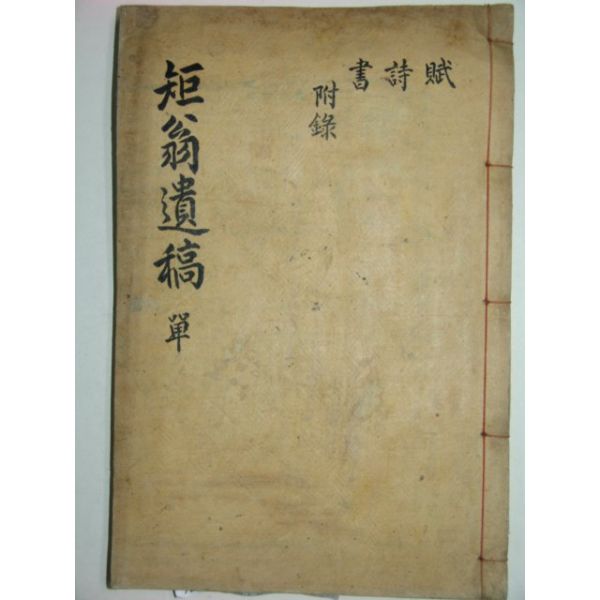 賦 詩 書
附錄
矩翁遺稿 單